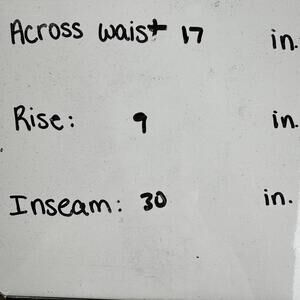 Across waist 17 in.
Rise: 9 in.
Inseam: 30 in.